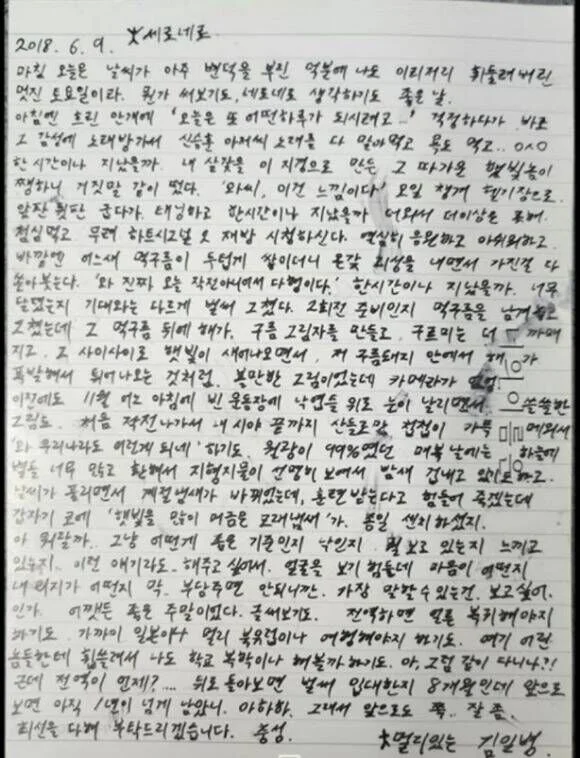 2018. 6. 9. 大세로네로
마침 오늘은 날씨가 아주 변덕을 부린 덕분에 나도 이리저리 휘둘려버린
멋진 토요일이라. 뭔가 써보기도, 네로네로 생각하기도 좋은 날.
아침엔 흐린 안개에 '오늘은 또 어떤하루가 되시려고...' 걱정하다가 바로
그 감성에 노래방가서 신승훈 아저씨 노래를 다 잡아먹고 욕도 먹고.. ㅇㅅㅇ
한시간이나 지났을까. 내 살갗을 이 지경으로 만든 그 따가운 햇빛놈이
쨍하니 거짓말 같이 떴다. '와씨, 이건 느낌이다' 오일 챙겨 헬기장으로.
앞판 뒷판 굽다가. 태닝하고 한시간이나 지났을까 더워서 더이상은 못해.
점심먹고 무려 하트시그널 오 재방 시청하신다. 열심히 응원하고 아쉬워하고.
바깥엔 어느새 먹구름이 두텁게 쌓이더니 온갖 괴성을 내면서 가진걸 다
쏟아붓는다. '와 진짜 오늘 작전아니어서 다행이다.' 한시간이나 지났을까. 너무
달렸는지 기대와는 다르게 벌써 그쳤다. 2회전 준비인지 먹구름을 남겨놓고
그쳤는데 그 먹구름 뒤에 해가. 구름 그림자를 만들고. 구르미는 더 까매
지고. 그 사이사이로 햇빛이 새어나오면서. 저 구름돼지 안에서 해가
폭발해서 튀어나오는 것처럼. 볼만한 그림이었는데 카메라가 없었
이전에도 11월 어느 아침에 빈 운동장에 낙엽들 위로 눈이 날리면서. 쓸쓸한
그림도. 처음 작전나가서 내 시야 끝까지 산들로만 첩첩이 가득 메워서
'와 우리나라도 이렇게 되네' 하기도. 월광이 99%였던 매복날에는 하늘에
별들 너무 많고 환해서 지형지물이 선명히 보여서 밤새 겁내고 있기도하고.
날씨가 풀리면서 계절냄새가 바뀌었는데, 훈련 받는다고 힘들어 죽겠는데
갑자기 코에 '햇빛을 많이 머금은 모래냄새'가. 종일 센치하셨지.
아 뭐랄까.. 그냥 어떻게 좁은 기준인지 낙인지 뭘 보고 있는지 느끼고
있는지.. 이런 얘기라도.. 해주고 싶어서. 얼굴을 보기 힘들네 마음이 어떤지
내 의지가 어떤지 막.. 부담주면 안되니깐. 가장 말할수 있는건. 보고싶어.
인가. 어쨋든 좋은 주말이었다. 글써보기도. 전역하면 얼른 복학해야지
하기도. 가까이 일본이나 멀리 북유럽이나 여행해야지 하기도. 여기 어린
놈들한테 휩쓸려서 나도 학교 복학이나 해볼까하기도. 아, 그럼 같이 다니나?!
근데 전역이 언제?.... 뒤로 돌아보면 벌써 입대한지 8개월인데 앞으로
보면 아직 1년이 넘게 남았니. 아하하. 그래서 앞으로도 쭉.. 잘 좀.
최선을 다해 부탁드리겠습니다. 충성.
大멀리있는 김일병